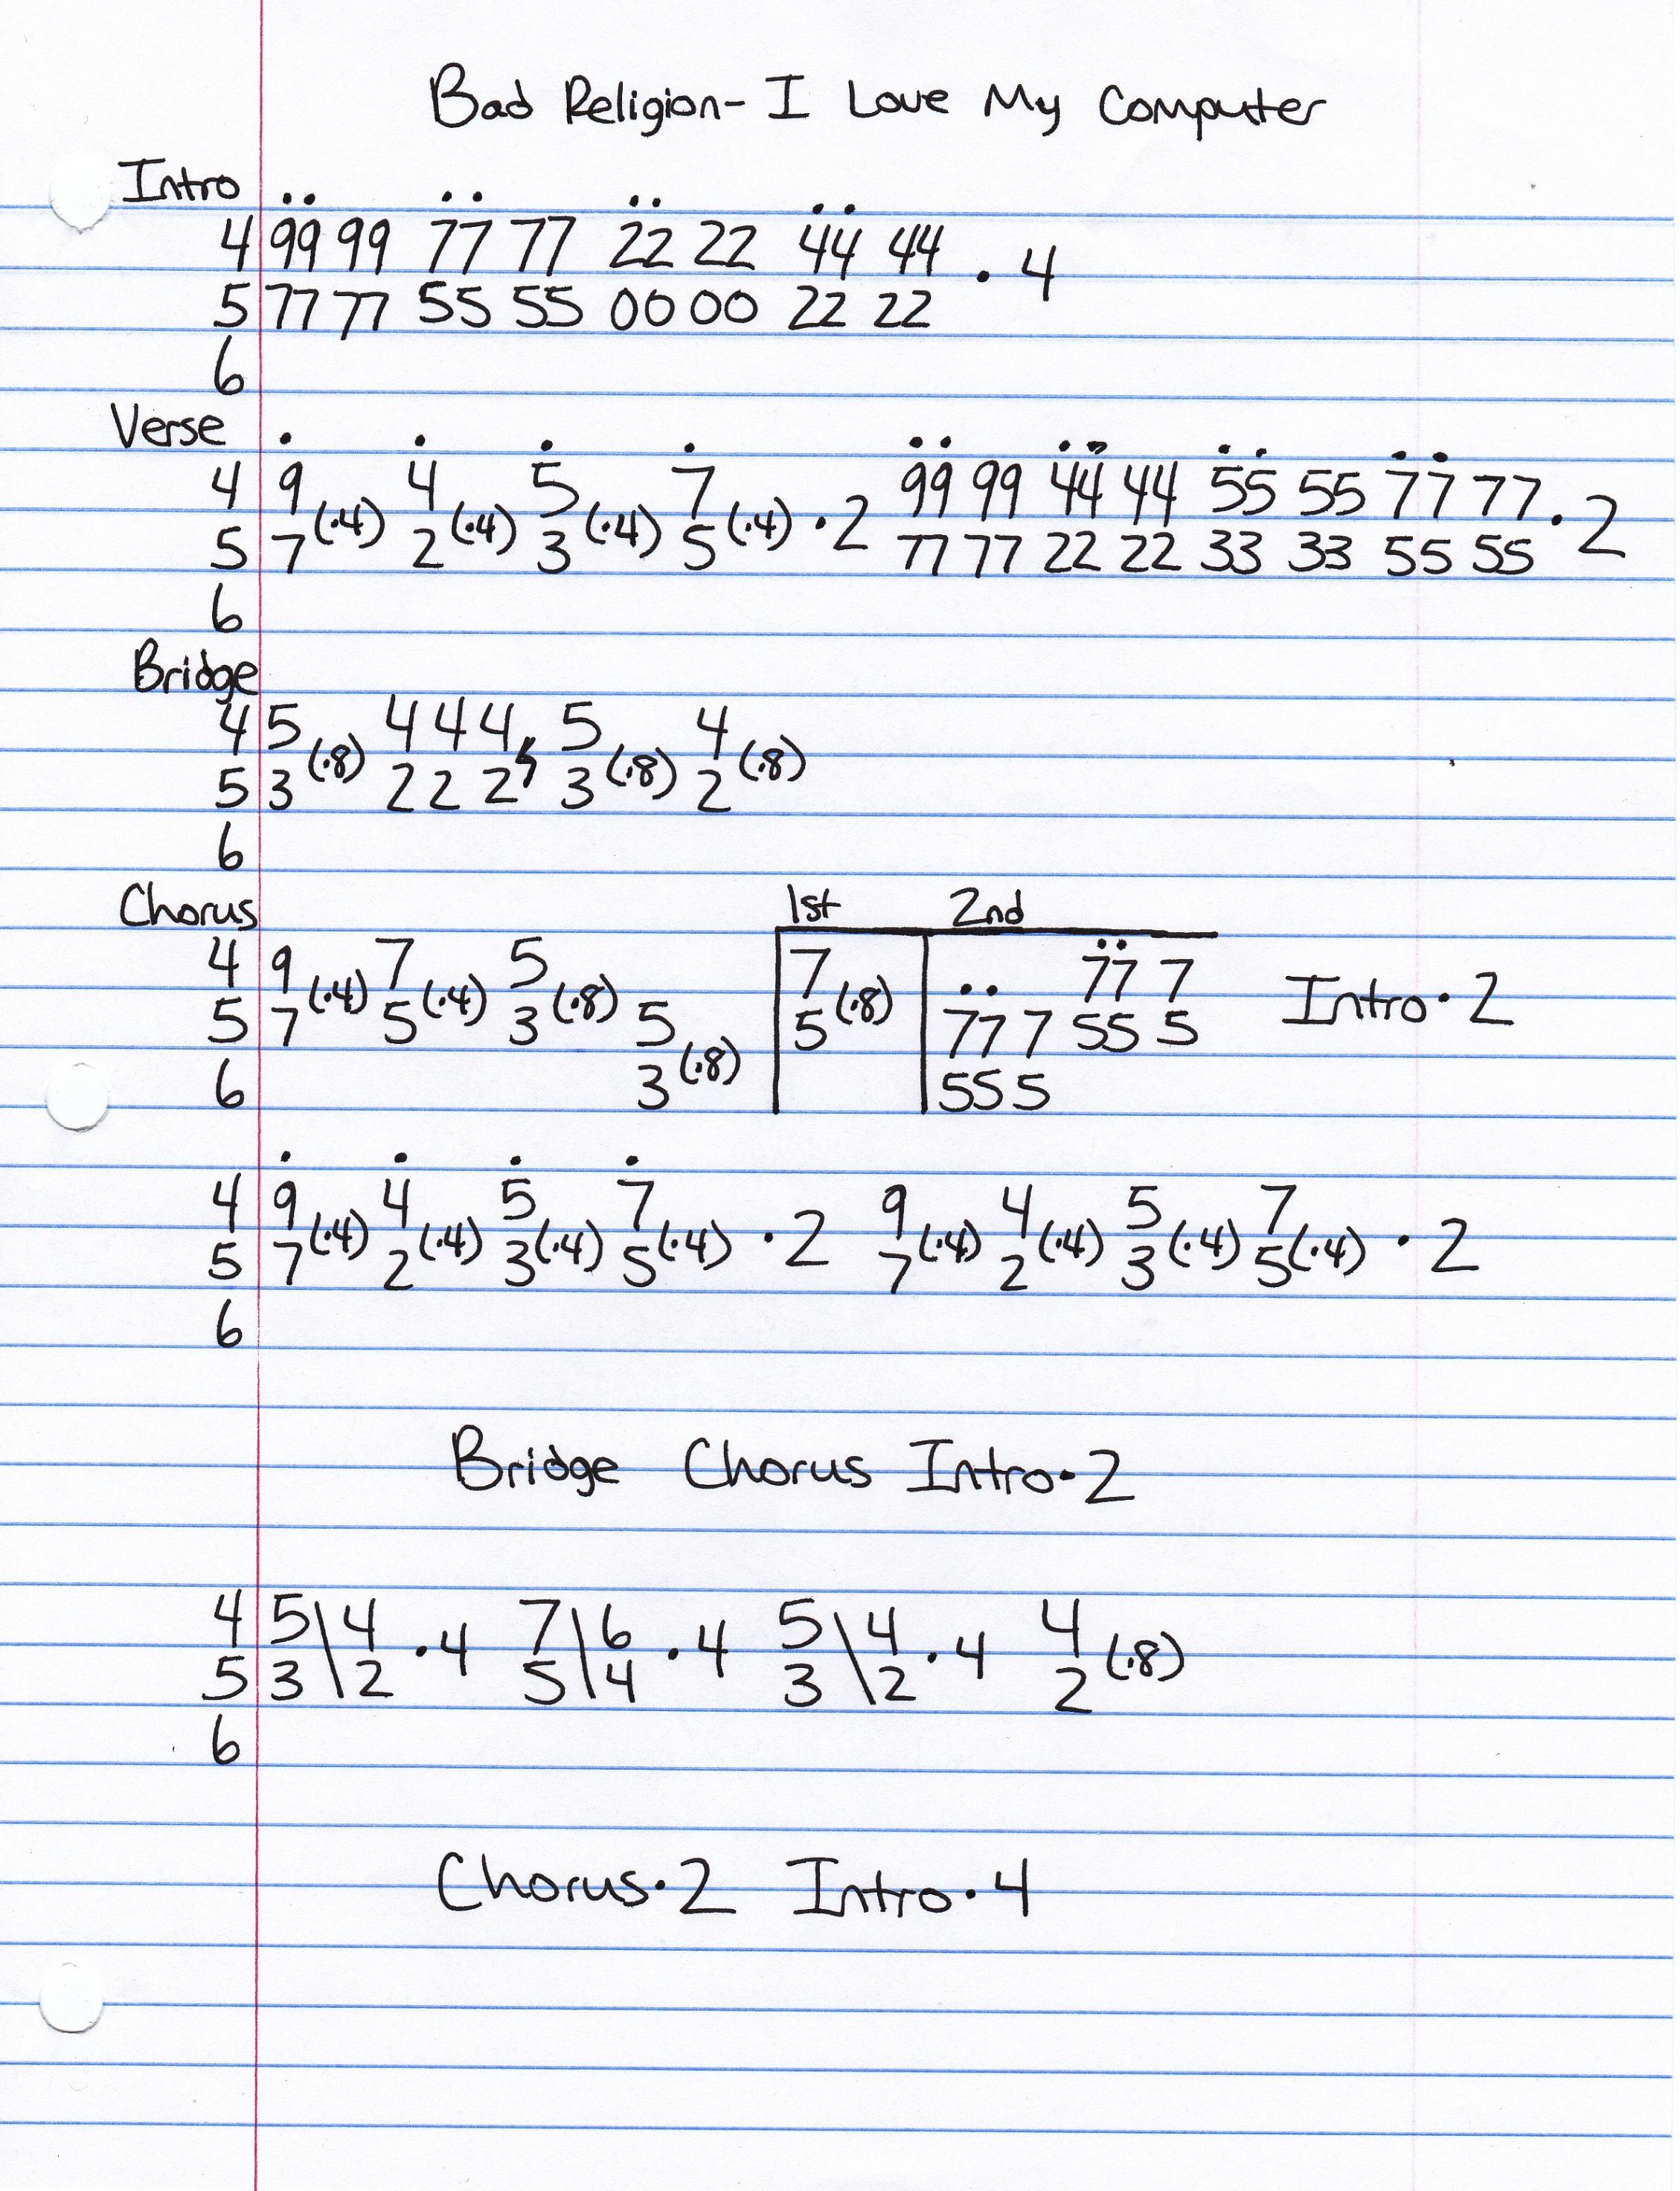 Bad Religion- I Love My Computer
Intro
4 99 99 77 77 22 22 44 44 · 4
5 77 77 55 55 00 00 22 22
6
Verse
4 9 4 5 7 99 99 44 44 55 55 77 77
(·4) (·4) (·4) (·4) · 2 · 2
5 7 2 3 5 77 77 22 22 33 33 55 55
6
Bridge
4 5 4 4 4 5 4
(·8) (·8) (·8)
5 3 2 2 2 3 2
6
Chorus 1st 2nd
4 9 7 5 7 77 7
(·4) (·4) (·8) (·8) Intro · 2
5 7 5 3 5 5 77 7 55 5
(·8)
6 3 55 5
4 9 4 5 7 9 4 5 7
(·4) (·4) (·4) (·4) · 2 (·4) (·4) (·4) (·4) · 2
5 7 2 3 5 7 2 3 5
6
Bridge Chorus Intro · 2
4 5\4 7\6 5\4 4
· 4 · 4 · 4 (·8)
5 3\2 5\4 3\2 2
6
Chorus · 2 Intro · 4